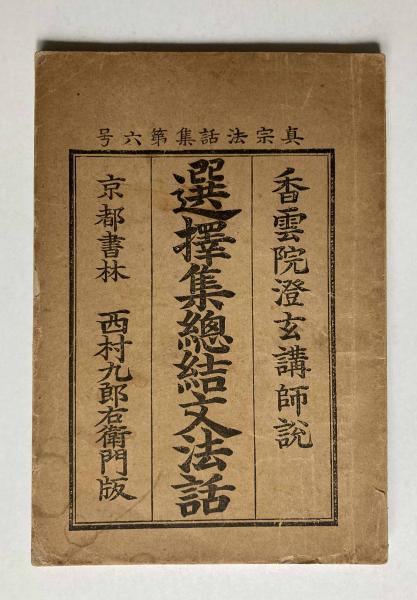 真宗法話集第六号
香雲院澄玄講師說
選擇集總結文法話
京都書林 西村九郎右衛門版